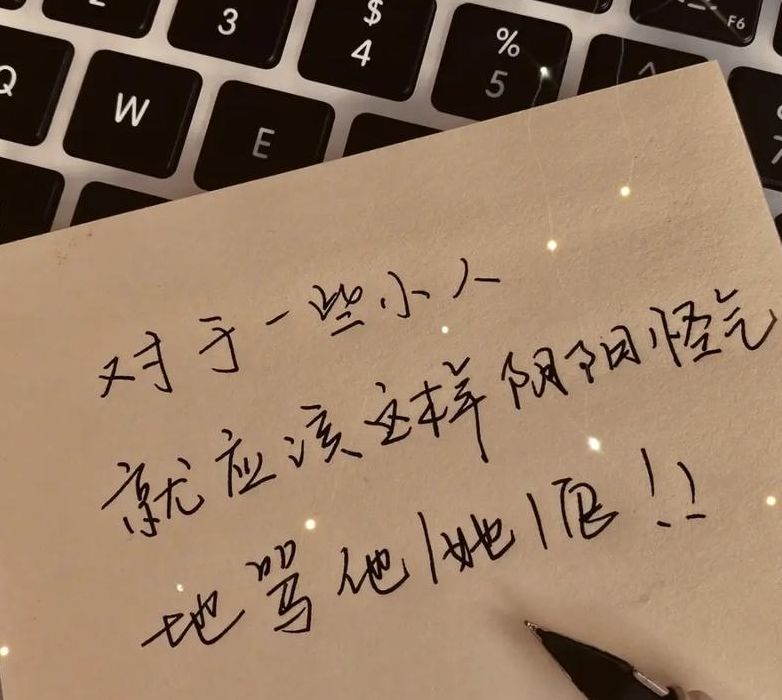 3 $ 4 % 5 F6
Q W E 7
对于一些小人
就应该这样阴阳怪气
地骂他/她/!!